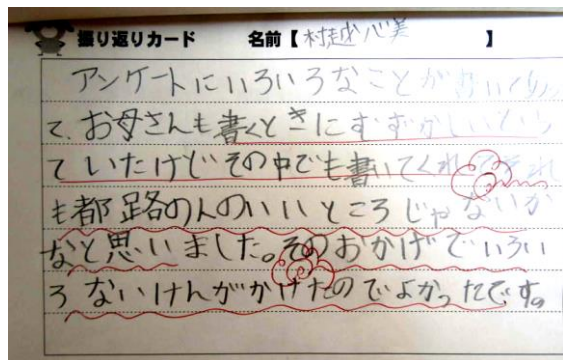 振り返りカード 名前【村越心美】
アンケートにいろいろなことがあいてあっ
て、お母さんも書くときにむずかしいといっ
ていたけどその中でも書いてくれてそれ
も都路の人のいいところじゃないか
なと思いました。そのおかげでいろい
ろないけんがかけたのでよかったです。